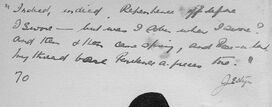 "Indeed, indeed, Repentance oft before
I swore – but was I sober when I swore?
And then & then came Spring, and Rose-in-hand
My thread bare Penitence a-pieces tore."
70